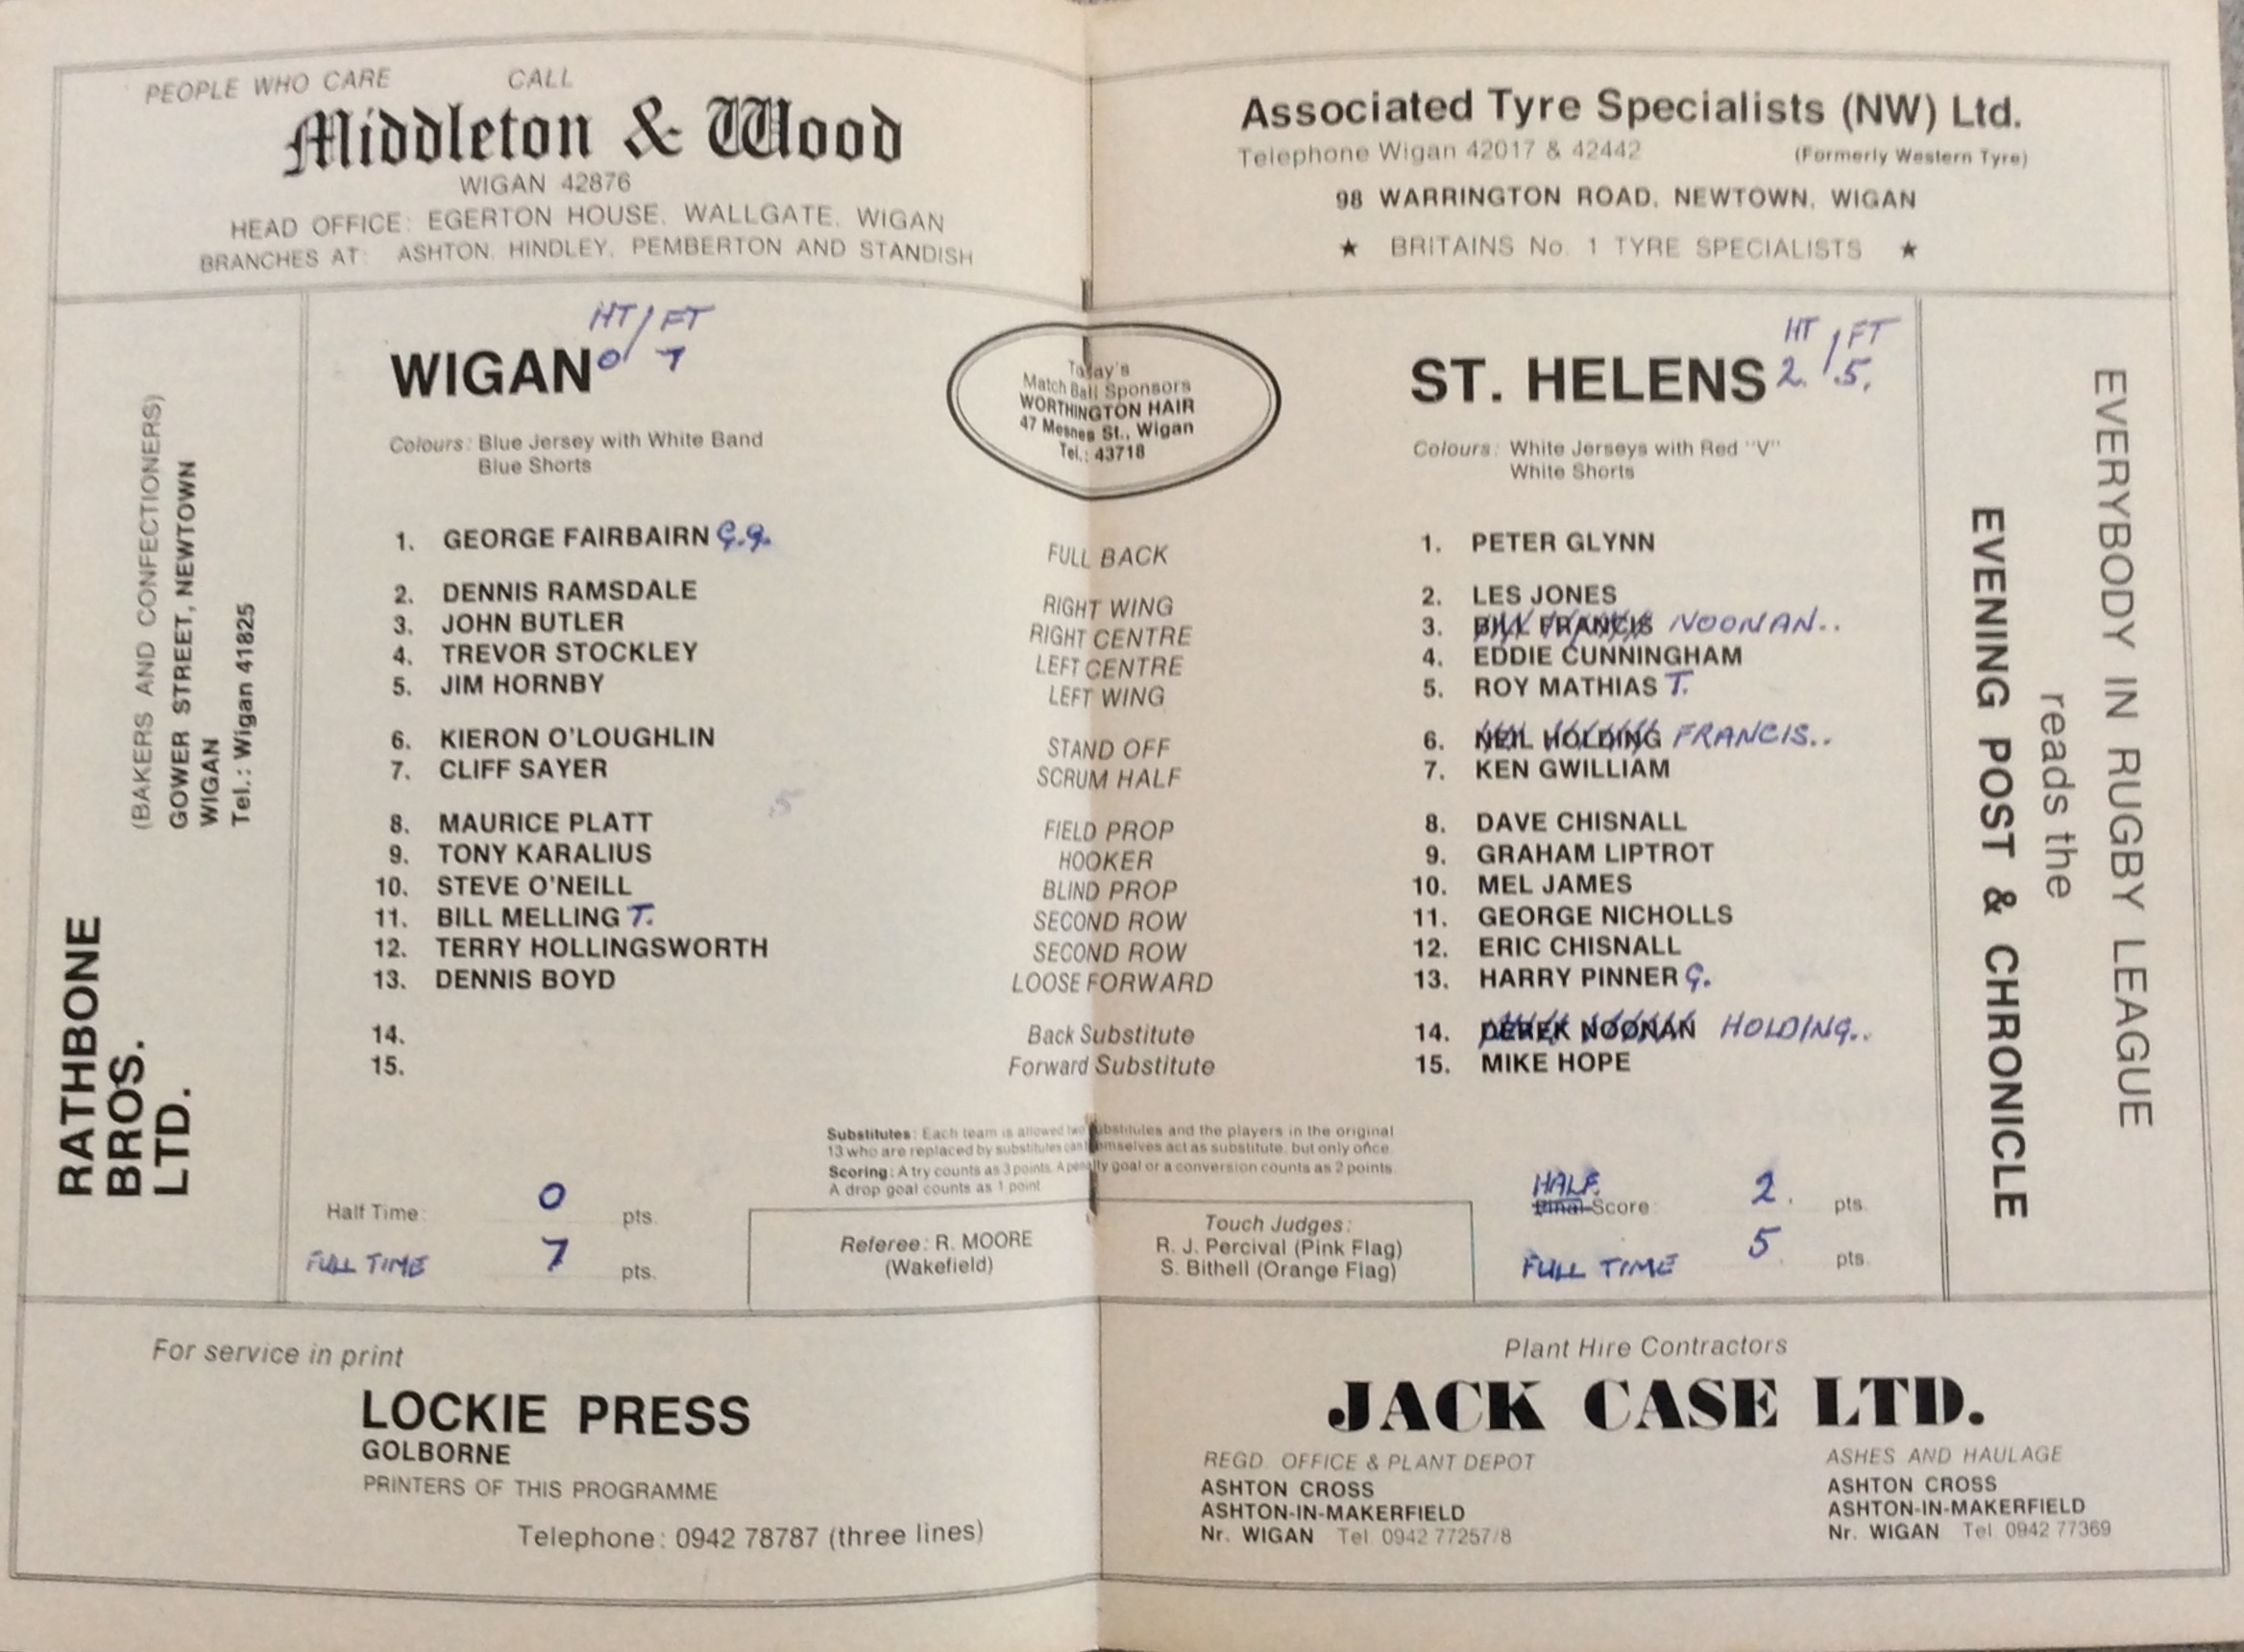 PEOPLE WHO CARE CALL
Middleton & Wood
WIGAN 42876
HEAD OFFICE: EGERTON HOUSE, WALLGATE, WIGAN
BRANCHES AT: ASHTON, HINDLEY, PEMBERTON AND STANDISH
Associated Tyre Specialists (NW) Ltd.
Telephone Wigan 42017 & 42442 (Formerly Western Tyre)
98 WARRINGTON ROAD, NEWTOWN, WIGAN
★ BRITAINS No. 1 TYRE SPECIALISTS ★
RATHBONE
BROS.
LTD.
(BAKERS AND CONFECTIONERS)
GOWER STREET, NEWTOWN
WIGAN
Tel.: Wigan 41825
HT / FT
WIGAN 0 7
Colours: Blue Jersey with White Band
Blue Shorts
1. GEORGE FAIRBAIRN G.g.
2. DENNIS RAMSDALE
3. JOHN BUTLER
4. TREVOR STOCKLEY
5. JIM HORNBY
6. KIERON O'LOUGHLIN
7. CLIFF SAYER
5
8. MAURICE PLATT
9. TONY KARALIUS
10. STEVE O'NEILL
11. BILL MELLING T.
12. TERRY HOLLINGSWORTH
13. DENNIS BOYD
14.
15.
Half Time: 0 pts.
FULL TIME 7 pts.
Today's
Match Ball Sponsors
WORTHINGTON HAIR
47 Mesnes St., Wigan
Tel.: 43718
FULL BACK
RIGHT WING
RIGHT CENTRE
LEFT CENTRE
LEFT WING
STAND OFF
SCRUM HALF
FIELD PROP
HOOKER
BLIND PROP
SECOND ROW
SECOND ROW
LOOSE FORWARD
Back Substitute
Forward Substitute
Substitutes: Each team is allowed two substitutes and the players in the original
13 who are replaced by substitutes can themselves act as substitute, but only once.
Scoring: A try counts as 3 points. A penalty goal or a conversion counts as 2 points.
A drop goal counts as 1 point.
Referee: R. MOORE
(Wakefield)
Touch Judges:
R. J. Percival (Pink Flag)
S. Bithell (Orange Flag)
HT / FT
ST. HELENS 2. 5.
Colours: White Jerseys with Red "V"
White Shorts
1. PETER GLYNN
2. LES JONES
3. BILL FRANCIS NOONAN..
4. EDDIE CUNNINGHAM
5. ROY MATHIAS T.
6. NEIL HOLDING FRANCIS..
7. KEN GWILLIAM
8. DAVE CHISNALL
9. GRAHAM LIPTROT
10. MEL JAMES
11. GEORGE NICHOLLS
12. ERIC CHISNALL
13. HARRY PINNER G.
14. DEREK NOONAN HOLDING..
15. MIKE HOPE
HALF
Final Score: 2. pts.
FULL TIME 5 pts.
EVERYBODY IN RUGBY LEAGUE
reads the
EVENING POST & CHRONICLE
For service in print
LOCKIE PRESS
GOLBORNE
PRINTERS OF THIS PROGRAMME
Telephone: 0942 78787 (three lines)
Plant Hire Contractors
JACK CASE LTD.
REGD. OFFICE & PLANT DEPOT
ASHTON CROSS
ASHTON-IN-MAKERFIELD
Nr. WIGAN Tel. 0942 77257/8
ASHES AND HAULAGE
ASHTON CROSS
ASHTON-IN-MAKERFIELD
Nr. WIGAN Tel. 0942 77369